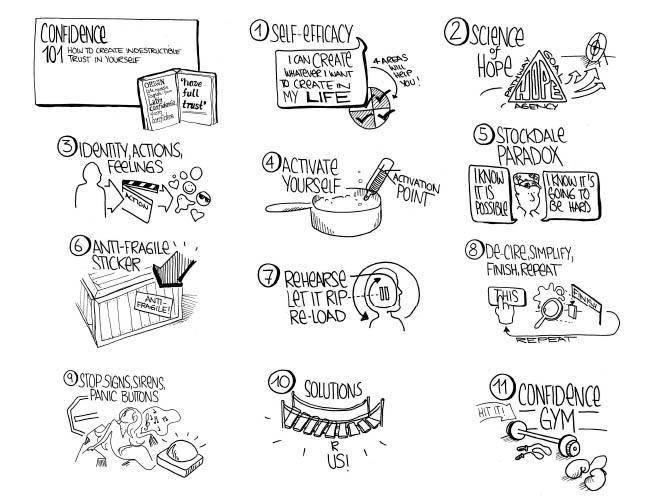 CONFIDENCE
101 HOW TO CREATE INDESTRUCTIBLE
TRUST IN YOURSELF
ORIGIN
Latin
"have
full
trust"
1 SELF-EFFICACY
I CAN CREATE
WHATEVER I WANT
TO CREATE IN
MY LIFE
4 AREAS
WILL
HELP
YOU!
2 SCIENCE
of
HOPE
PATHWAY
GOAL
HOPE
AGENCY
3 IDENTITY, ACTIONS,
FEELINGS
ACTION
4 ACTIVATE
YOURSELF
ACTIVATION
POINT
5 STOCKDALE
PARADOX
I KNOW
IT IS
POSSIBLE
I KNOW IT'S
GOING TO
BE HARD
6 ANTI-FRAGILE
STICKER
ANTI-
FRAGILE!
7 REHEARSE
LET IT RIP-
RE-LOAD
8 DE-CIRE, SIMPLIFY,
FINISH, REPEAT
THIS
FINISH
REPEAT
9 STOP SIGNS, SIRENS,
PANIC BUTTONS
10 SOLUTIONS
R
US!
11 CONFIDENCE
GYM
HIT IT!